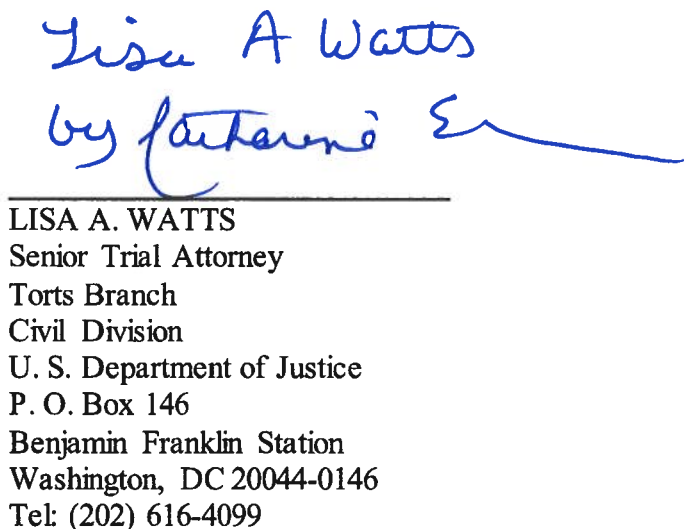 Lisa A Watts
by Catharine E
LISA A. WATTS
Senior Trial Attorney
Torts Branch
Civil Division
U. S. Department of Justice
P. O. Box 146
Benjamin Franklin Station
Washington, DC 20044-0146
Tel: (202) 616-4099